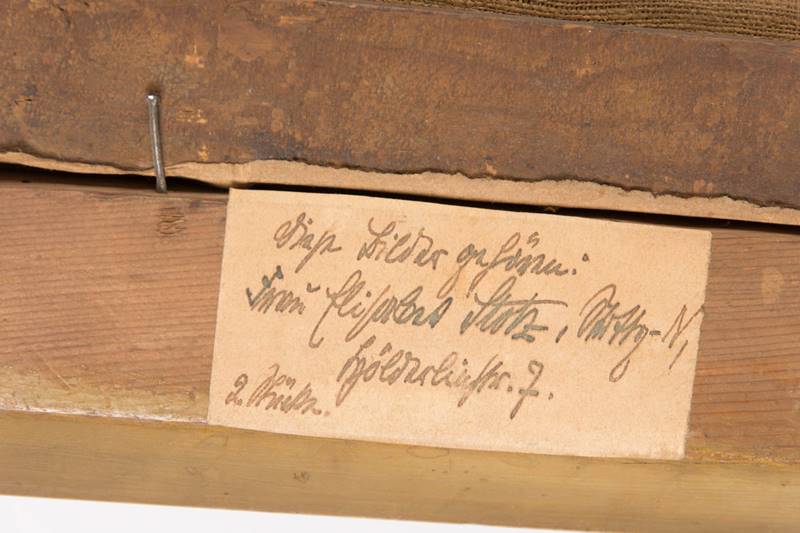 Diese Bilder gehören:
Frau Elisabet Stotz, Stuttg-N,
Hölderlinstr. 7.
2. Stück.